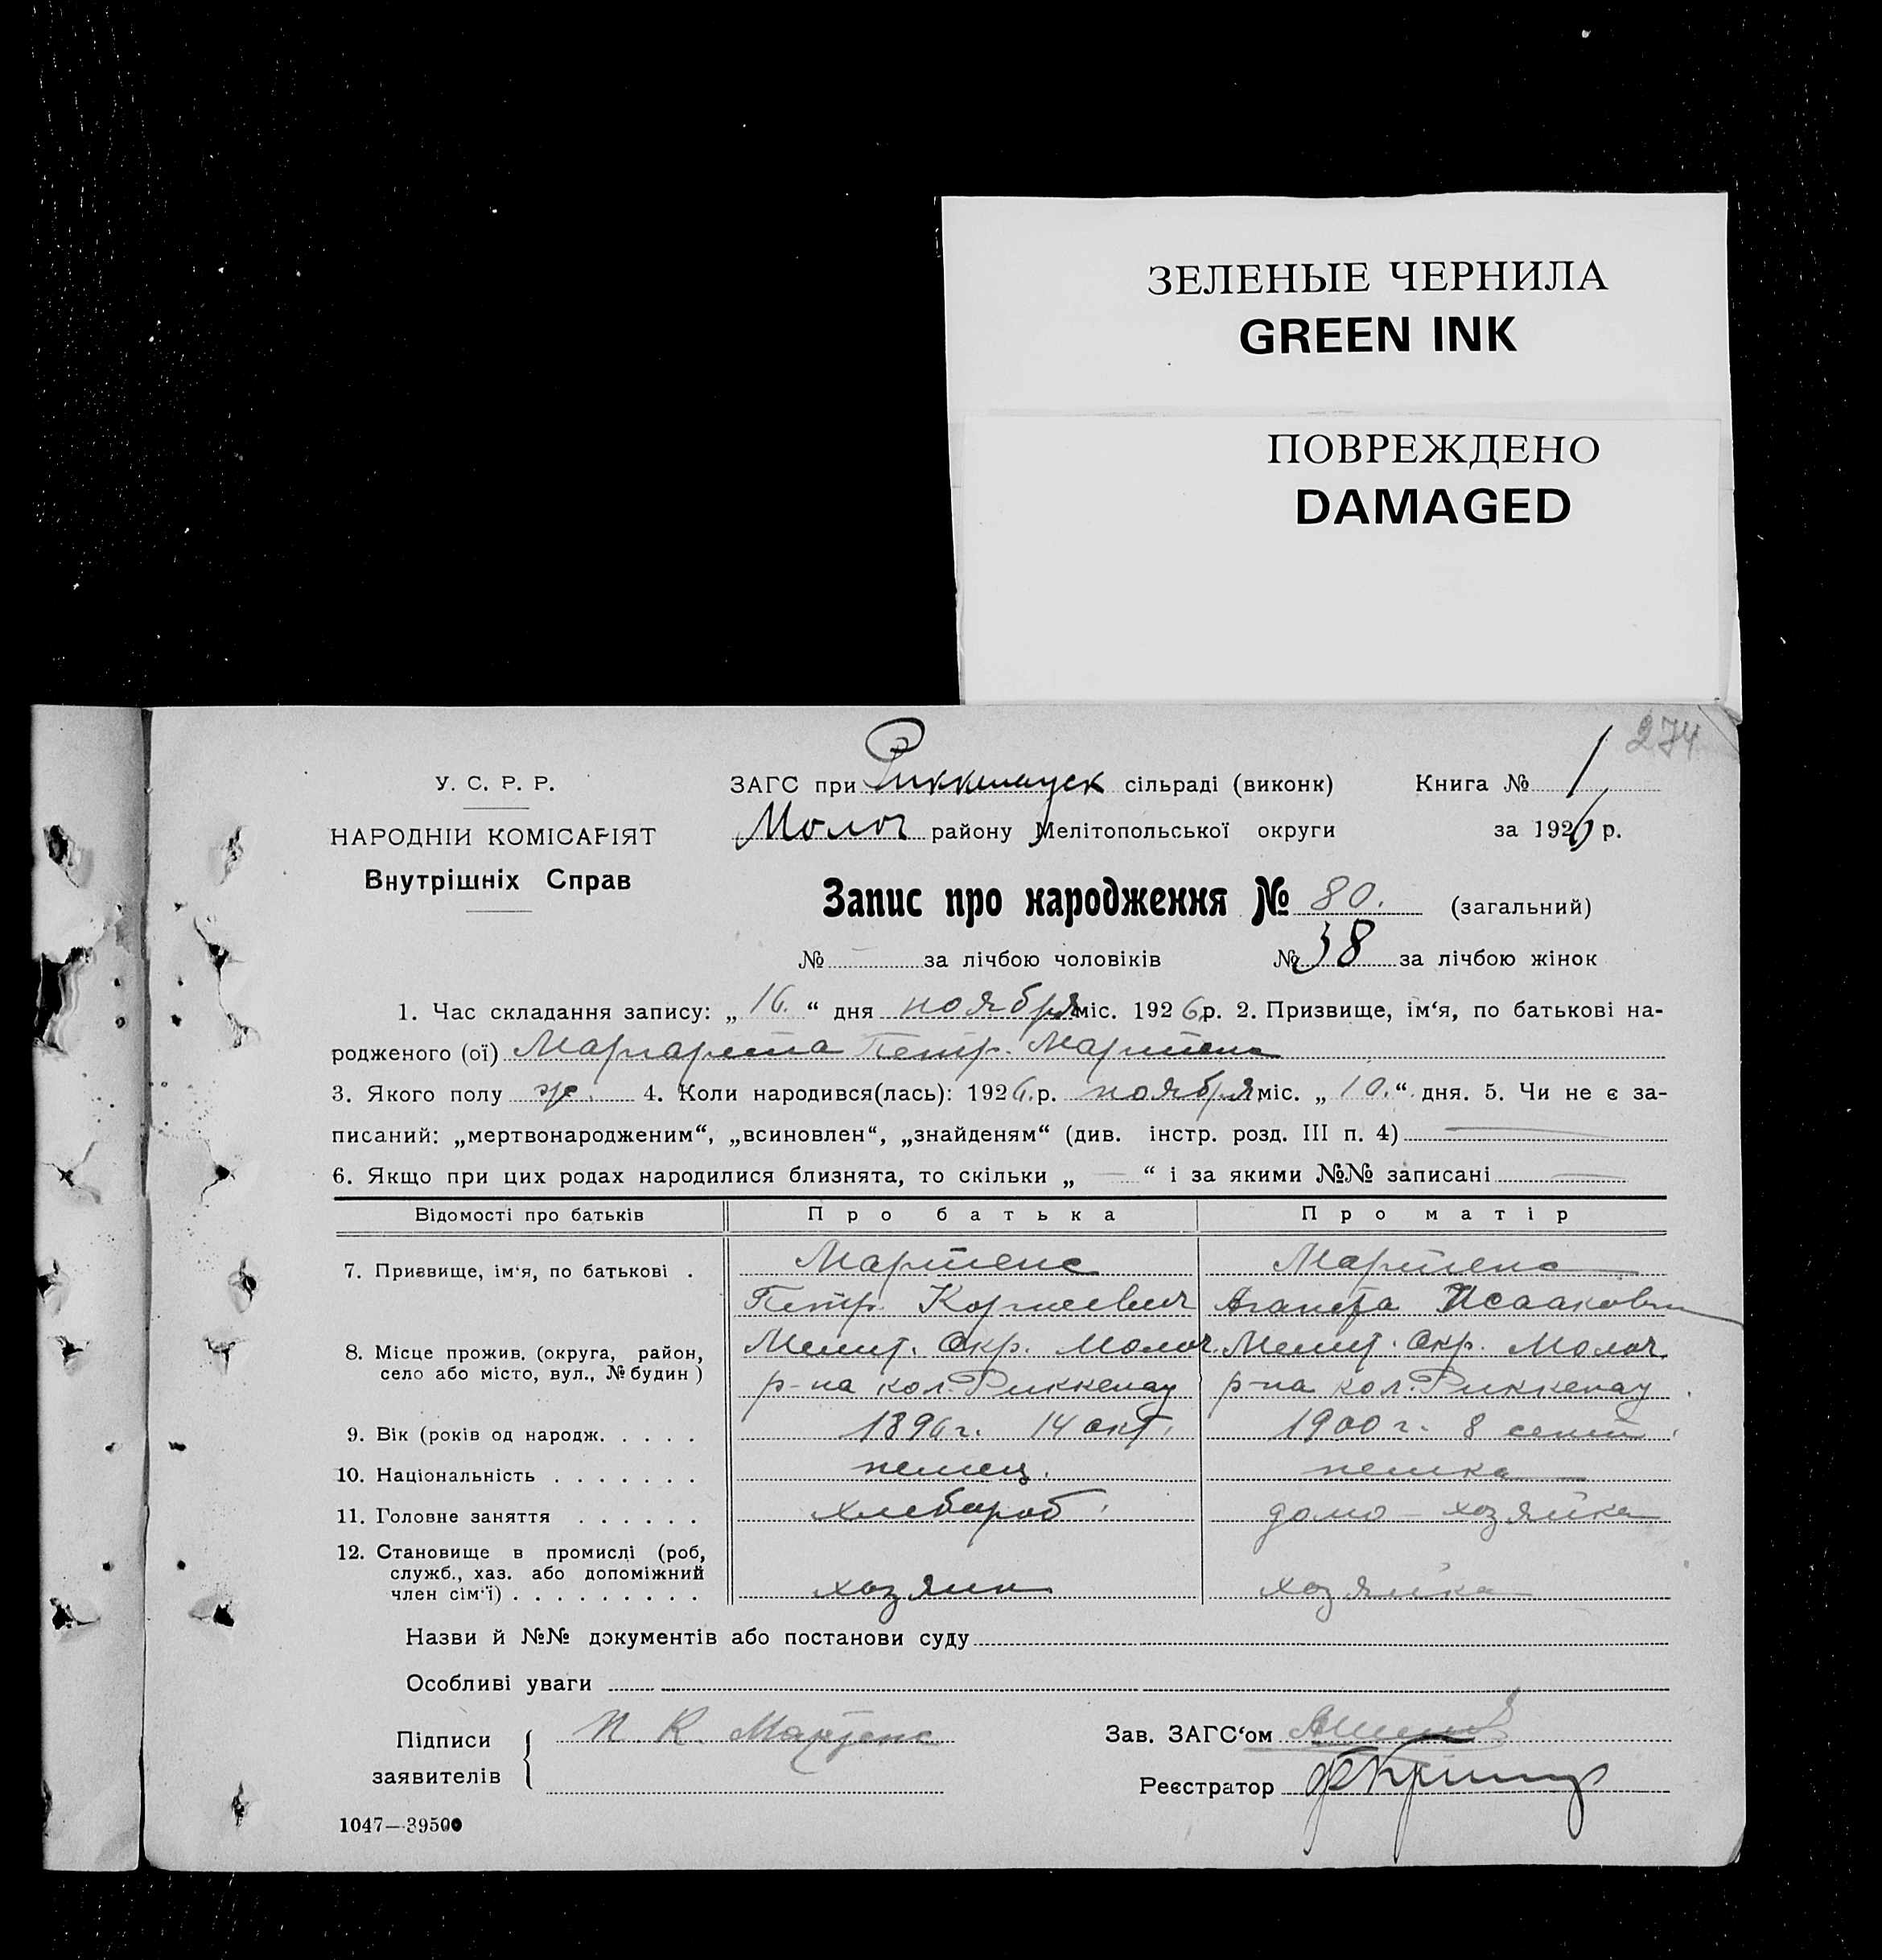 ЗЕЛЕНЫЕ ЧЕРНИЛА
GREEN INK
ПОВРЕЖДЕНО
DAMAGED
274
У. С. Р. Р.
НАРОДНІИ КОМІСАРІЯТ
Внутрішніх Справ
ЗАГС при Риккенауск сільраді (виконк) Книга № 1
Молоч району Мелітопольської округи за 1926 р.
Запис про народження № 80. (загальний)
№ — за лічбою чоловіків № 38 за лічбою жінок
1. Час складання запису: „16.“ дня ноября міс. 1926 р. 2. Призвище, ім‘я, по батькові на-
родженого (ої) Маргарета Петр. Мартенс
3. Якого полу ж. 4. Коли народився(лась): 1926. р. ноября міс. „10.“ дня. 5. Чи не є за-
писаний: „мертвонародженим“, „всиновлен“, „знайденям“ (див. інстр. розд. III п. 4) —
6. Якщо при цих родах народилися близнята, то скільки „—“ і за якими №№ записані —
Відомості про батьків Про батька Про матір
7. Призвище, ім‘я, по батькові . Мартенс Мартенс
Петр. Корнеевич Аганета Исааковн
8. Місце прожив. (округа, район, Мелит. Окр. Молоч. Мелит. Окр. Молоч.
село або місто, вул., № будин) р-на кол. Риккенау р-на кол. Риккенау
9. Вік (років од народж. . . . . 1896 г. 14 окт. 1900 г. 8 сент.
10. Національність . . . . . . . немец. немка
11. Головне заняття . . . . . . хлебороб домо-хозяйка
12. Становище в промислі (роб,
служб., хаз. або допоміжний
член сім‘ї) . . . . . . . . . хозяин хозяйка
Назви й №№ документів або постанови суду
Особливі уваги
Підписи П. К. Мартенс Зав. ЗАГС‘ом
заявителів Реєстратор
1047—39500